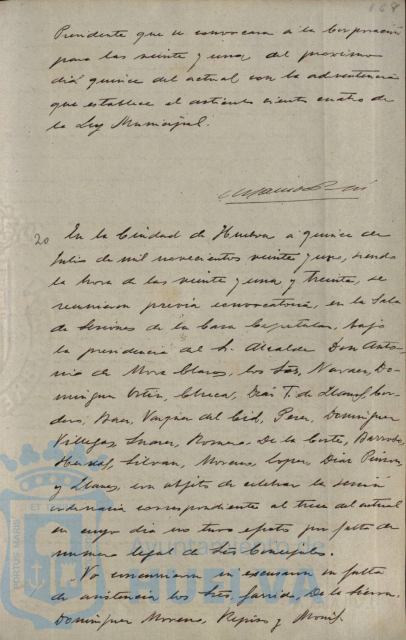 168
Presidente que se convocara á la Corporación
para las veinte y una del proximo
dia quince del actual con la advertencia
que establece el articulo ciento cuatro de
la Ley Municipal.
20 En la Ciudad de Huelva á quince de
Julio de mil novecientos veinte y uno, siendo
la hora de las veinte y una y treinta, se
reunieron previa convocatoria, en la Sala
de Sesiones de la Casa Capitular, bajo
la presidencia del Sr. Alcalde Don Anto-
nio de Mora Claros, los Sres. Narvaez, Do-
minguez Ortiz, Checa, Diaz T. de Llanos, Cor-
dero, Baez, Vazquez del Cid, Perez, Dominguez
Villegas, Suarez, Romero De la Corte, Barroso,
Silvan, Moreno Lopez, Diaz
y Llanes, con objeto de celebrar la sesión
ordinaria correspondiente al trece del actual
en cuyo dia no tuvo efecto por falta de
numero legal de Sres. Concejales.
No concurrieron ni excusaron su falta
de asistencia los Sres. Garrido, De la Sierra,
Dominguez Moreno, y
PORTUS MARIS ET
Ayuntamiento de
HUELVA